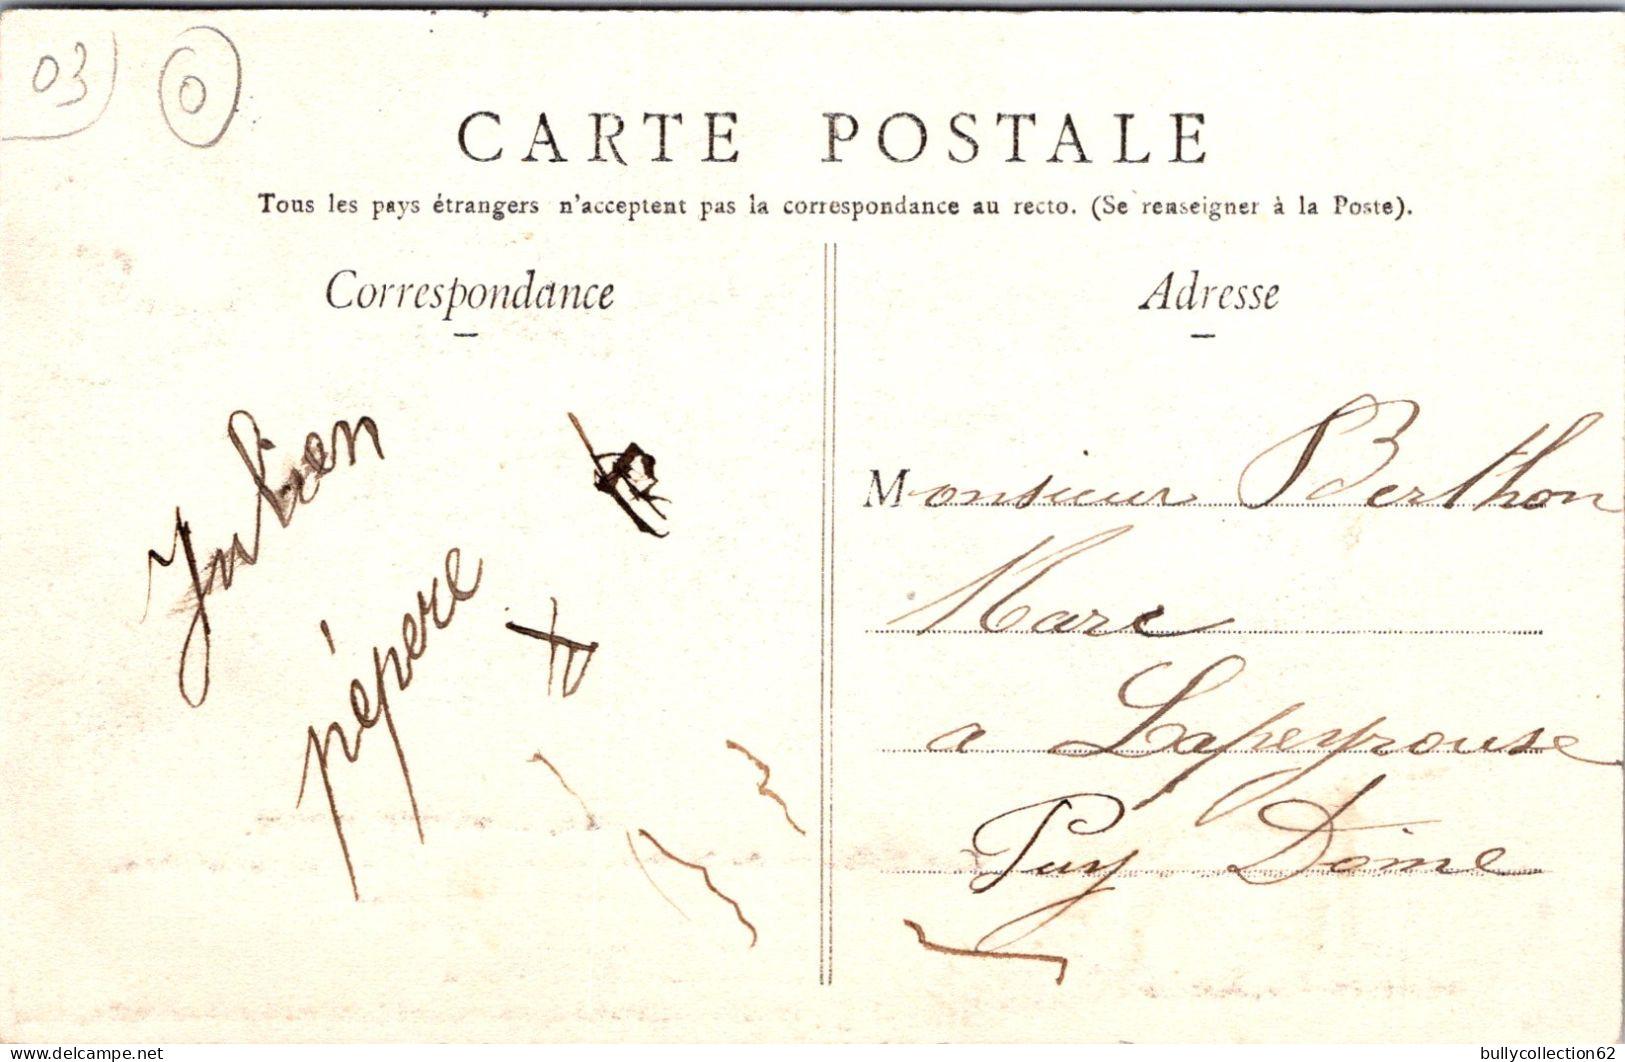 03
0
CARTE POSTALE
Tous les pays étrangers n'acceptent pas la correspondance au recto. (Se renseigner à la Poste).
Correspondance
Adresse
pépere
Monsieur Berthon
Marc
a Lapeyrouse
Puy Dôme
delcampe.net
bullycollection62